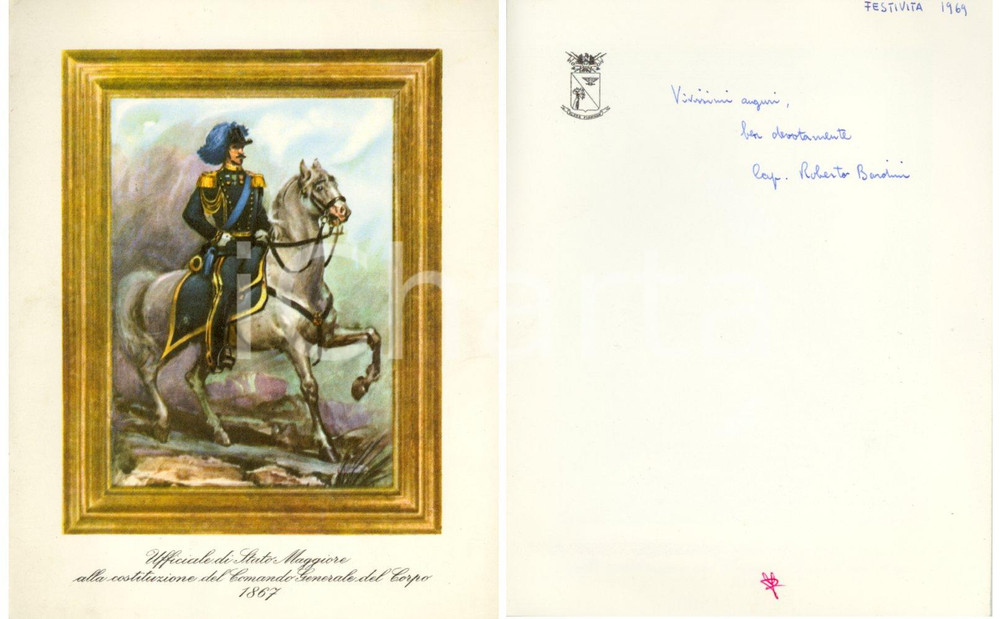 Ufficiale di Stato Maggiore
alla costituzione del Comando Generale del Corpo
1867
FESTIVITA 1969
Vivissimi auguri,
ben devotamente
Cap. Roberto Bardini
iCharta